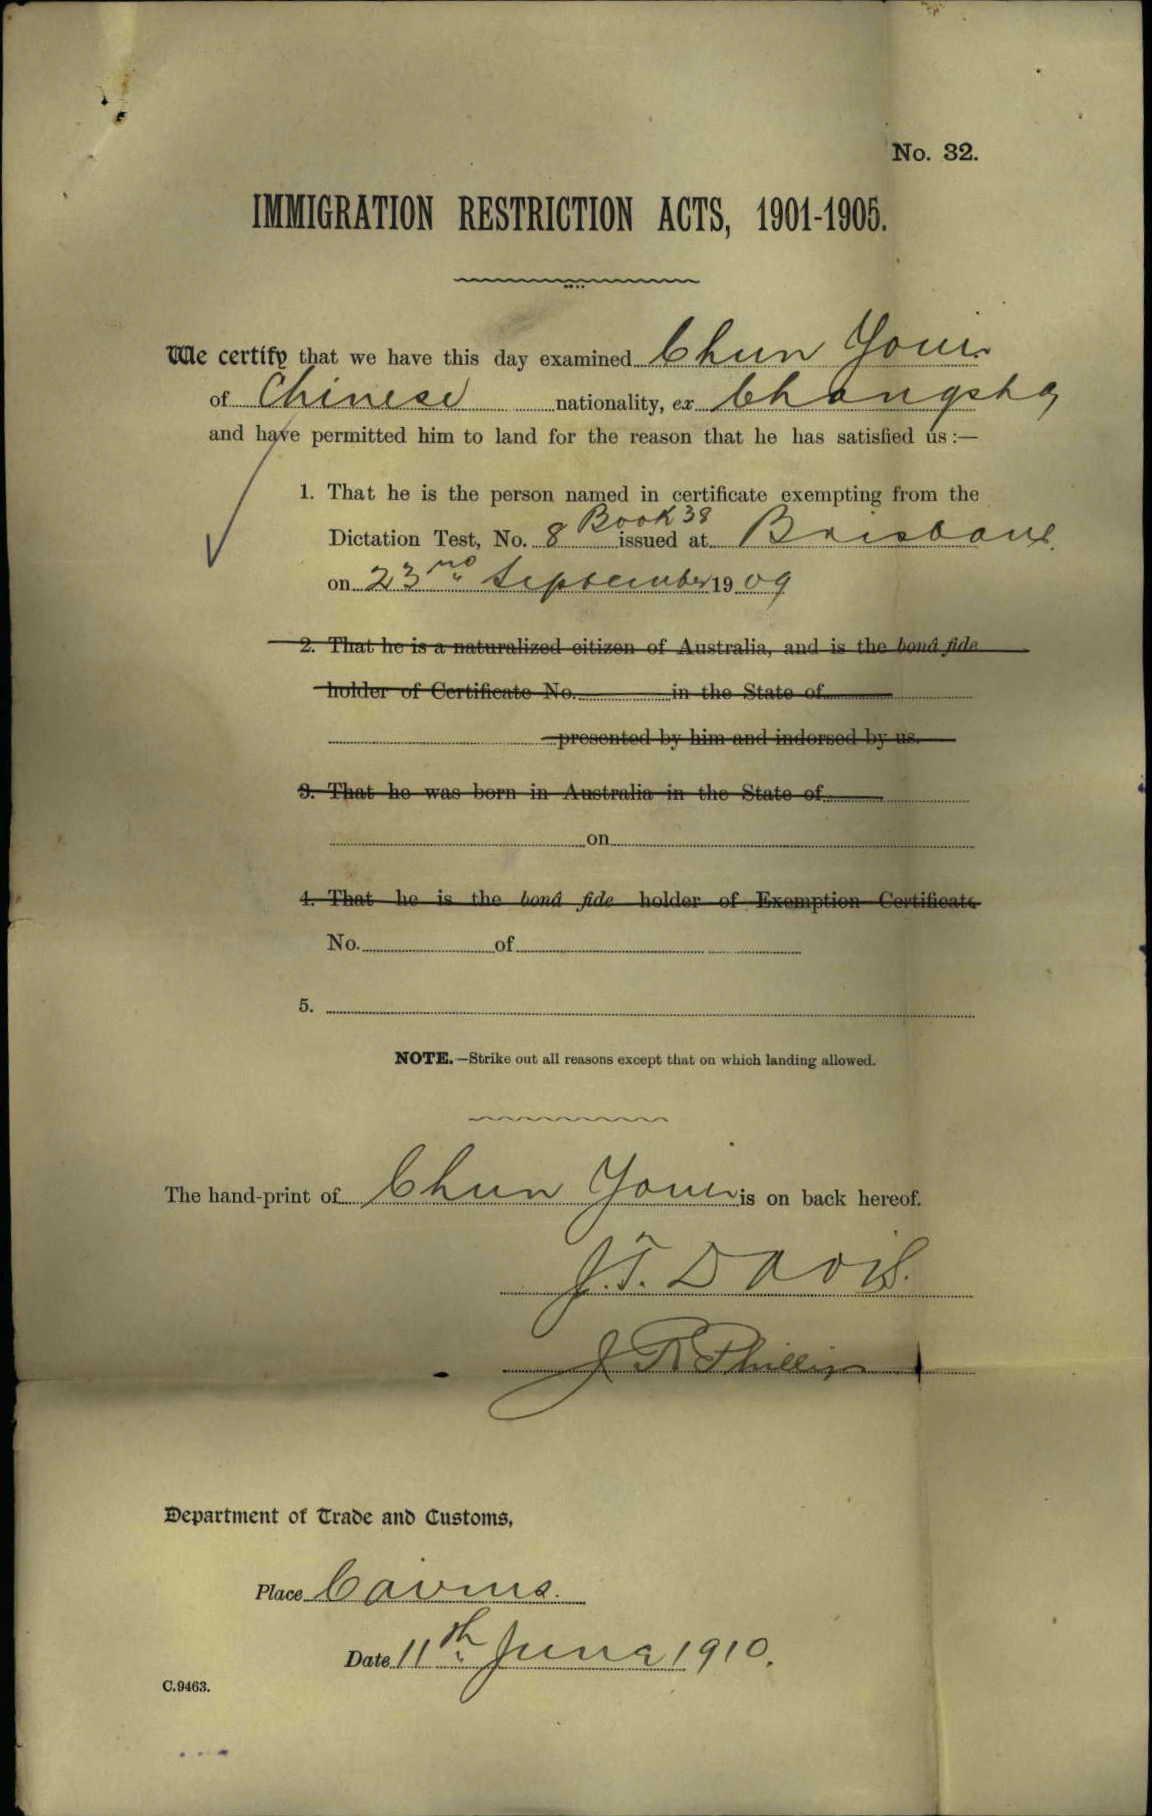 No. 32.
IMMIGRATION RESTRICTION ACTS, 1901-1905.
We certify that we have this day examined Chun Youn
of Chinese nationality, ex Changsha
and have permitted him to land for the reason that he has satisfied us :—
1. That he is the person named in certificate exempting from the
Book 38
Dictation Test, No. 8 issued at Brisbane.
on 23rd September 1909
2. That he is a naturalized citizen of Australia, and is the bonâ fide
holder of Certificate No. in the State of
presented by him and indorsed by us.
3. That he was born in Australia in the State of
on
4. That he is the bonâ fide holder of Exemption Certificate
No. of
5.
NOTE.—Strike out all reasons except that on which landing allowed.
The hand-print of Chun is on back hereof.
J.T. Davis.
J R Phillips
Department of Trade and Customs,
Place Cairns.
Date 11th June 1910.
C.9463.